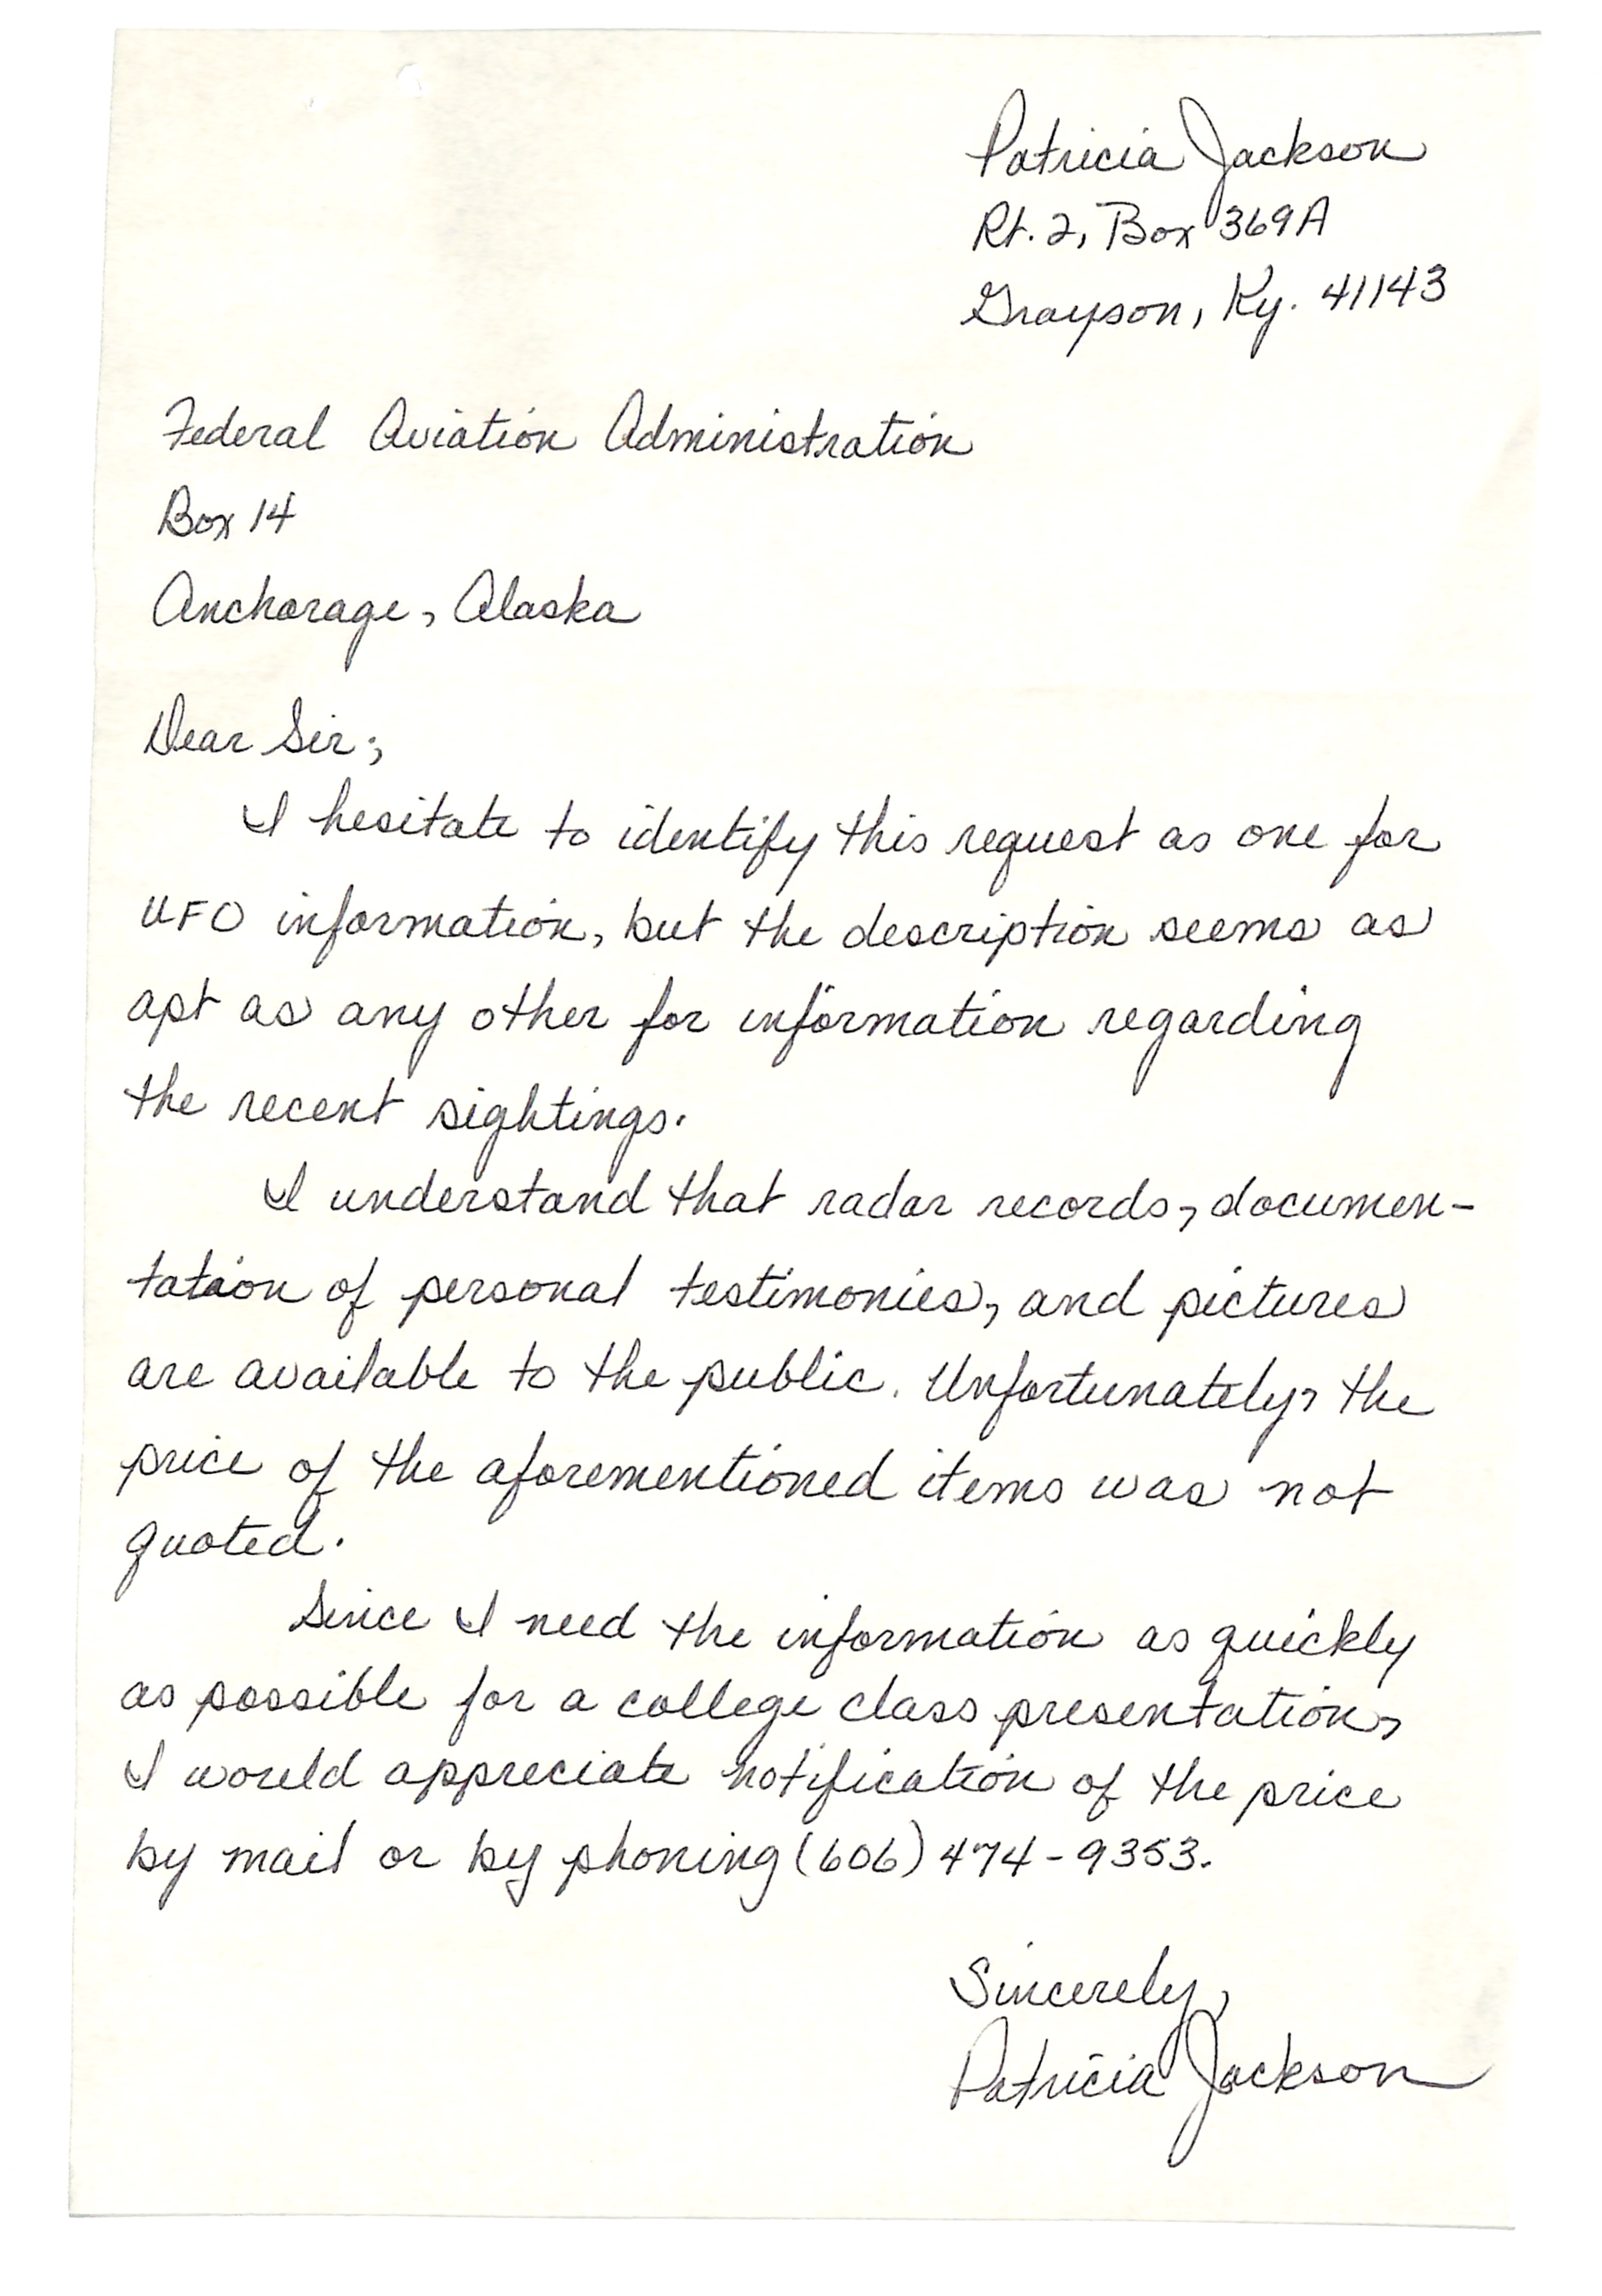 Patricia Jackson
Rt. 2, Box 369A
Grayson, Ky. 41143
Federal Aviation Administration
Box 14
Anchorage, Alaska
Dear Sir:,
I hesitate to identify this request as one for
UFO information, but the description seems as
apt as any other for information regarding
the recent sightings.
I understand that radar records, documen-
tation of personal testimonies, and pictures
are available to the public. Unfortunately, the
price of the aforementioned items was not
quoted.
Since I need the information as quickly
as possible for a college class presentation,
I would appreciate notification of the price
by mail or by phoning (606) 474-9353.
Sincerely,
Patricia Jackson